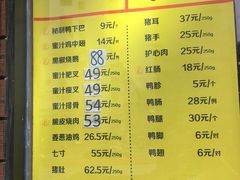 秘制鸭下巴 9元/个
蜜汁鸡中翅 14元/
黑椒烧鹅 88
蜜汁肥叉 49 /250g
蜜汁瘦叉 49 /250g
蜜汁排骨 54 /250g
脆皮烧肉 53 /250g
姜葱油鸡 26.5元/250g
七寸 55元/250g
猪肚 62.5元/250g
猪耳 37元/250g
猪手 25元/250g
护心肉 25元/250g
红肠 18元/250g
鸭胗 5元/个
鸭肠 28元/250g
鸭腿 30元/个
鸭脚 6元/对
鸭翅 6元/对